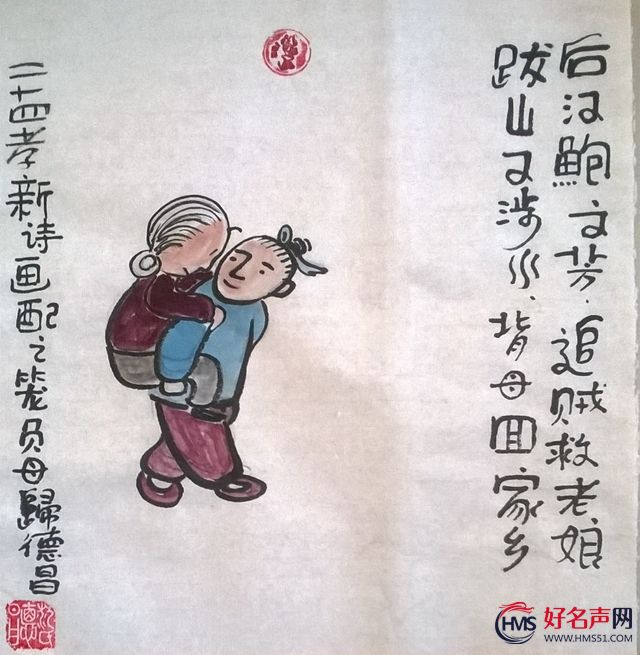 后汉鲍文芳.追贼救老娘
跋山又涉水.背母回家乡
二十四孝新诗画配之笼负母歸德昌
HMS 好名声网
WWW.HMS51.COM